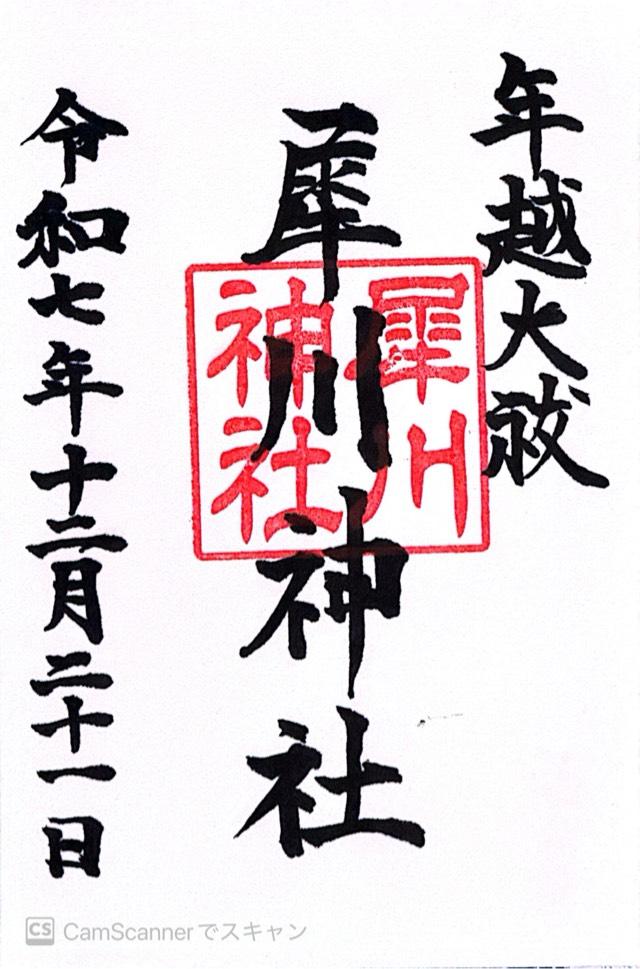 年越大祓
犀川神社
犀川
神社
令和七年十二月二十一日
CS CamScannerでスキャン